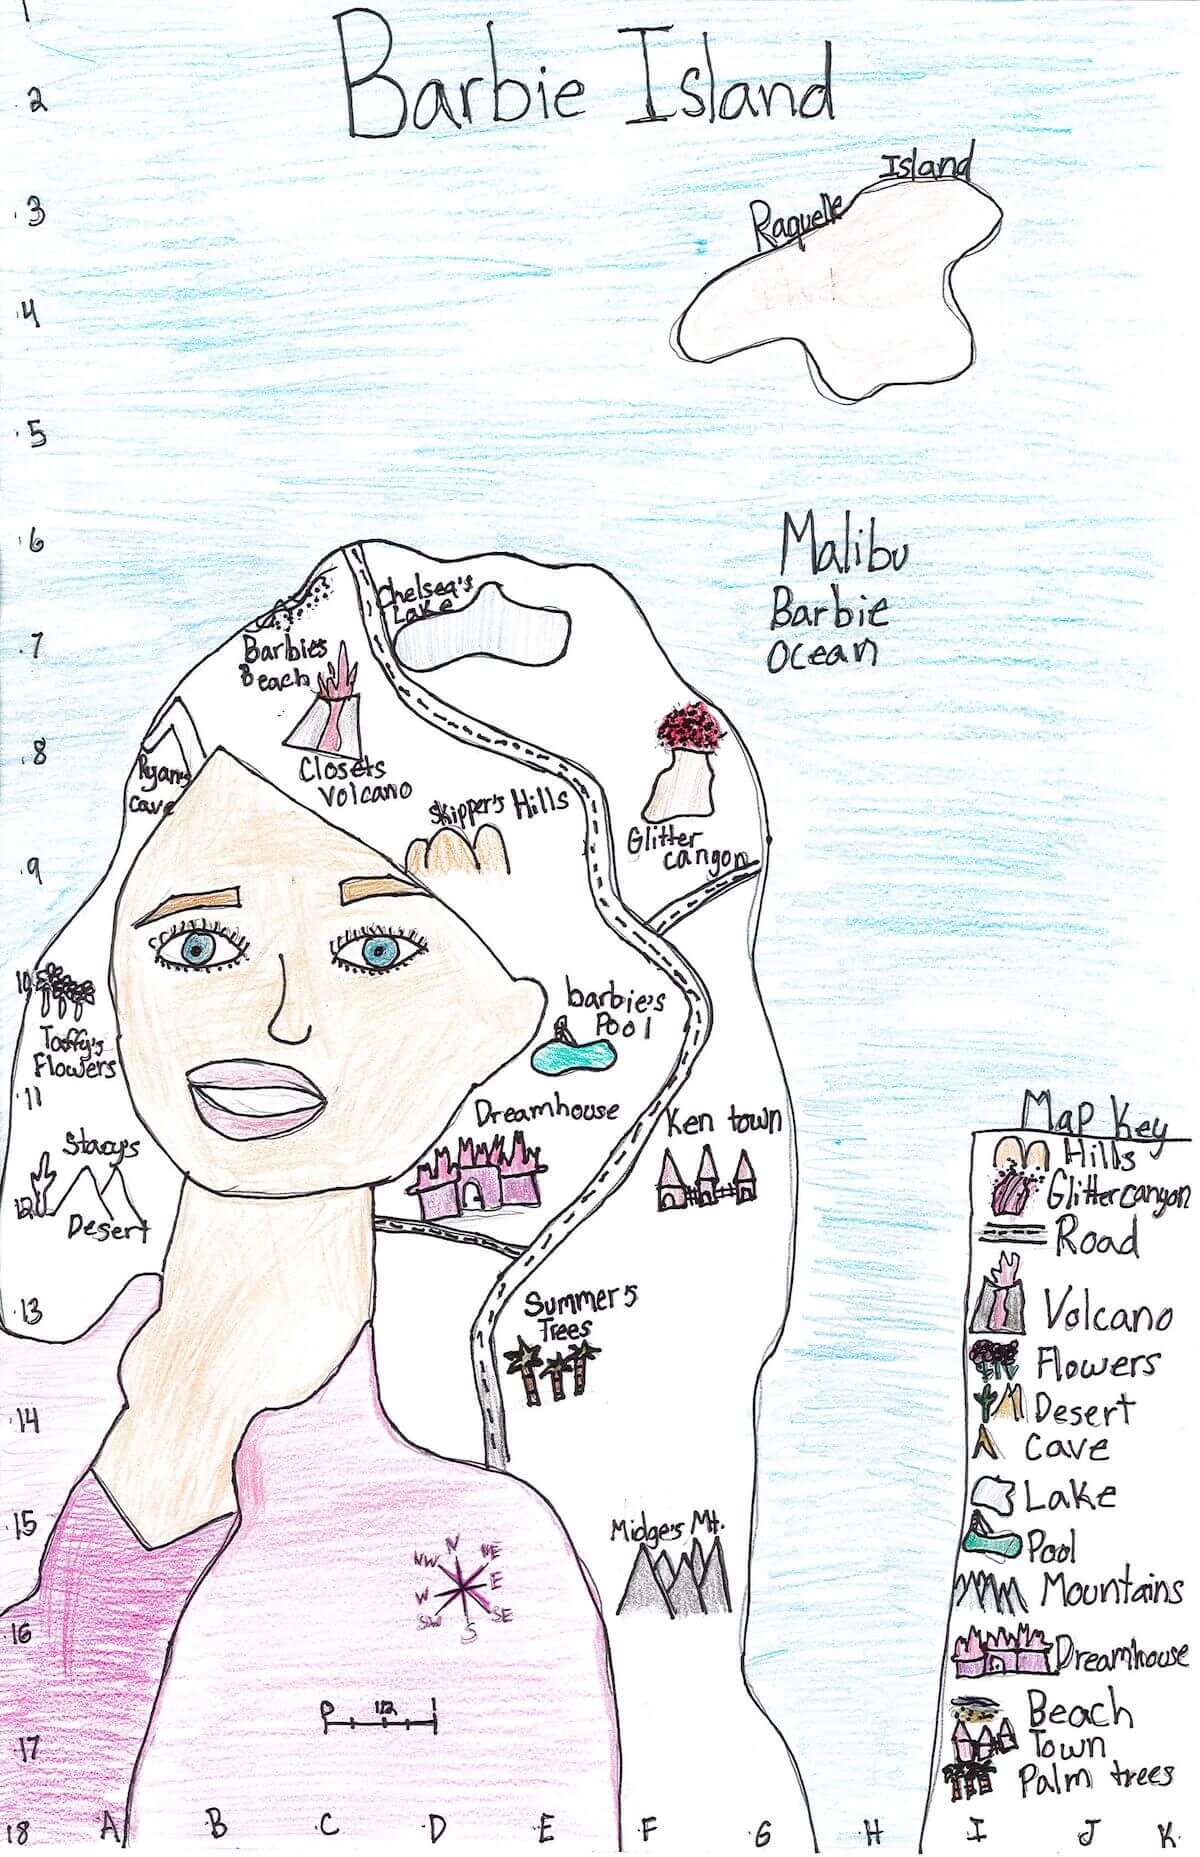 Barbie Island
Raquelle Island
Malibu
Barbie
Ocean
Chelsea's
Lake
Barbies
Beach
Closets
Volcano
Ryan's
Cave
Skipper's Hills
Glitter
cangon
Taffy's
Flowers
barbie's
Pool
Stacy's
Desert
Dreamhouse
Ken town
Summer's
Trees
Midge's Mt.
N
NE
E
SE
S
SW
W
NW
0 1/2 1
Map Key
Hills
Glittercanyon
Road
Volcano
Flowers
Desert
Cave
Lake
Pool
Mountains
Dreamhouse
Beach
Town
Palm trees
1
2
3
4
5
6
7
8
9
10
11
12
13
14
15
16
17
18 A B C D E F G H I J K